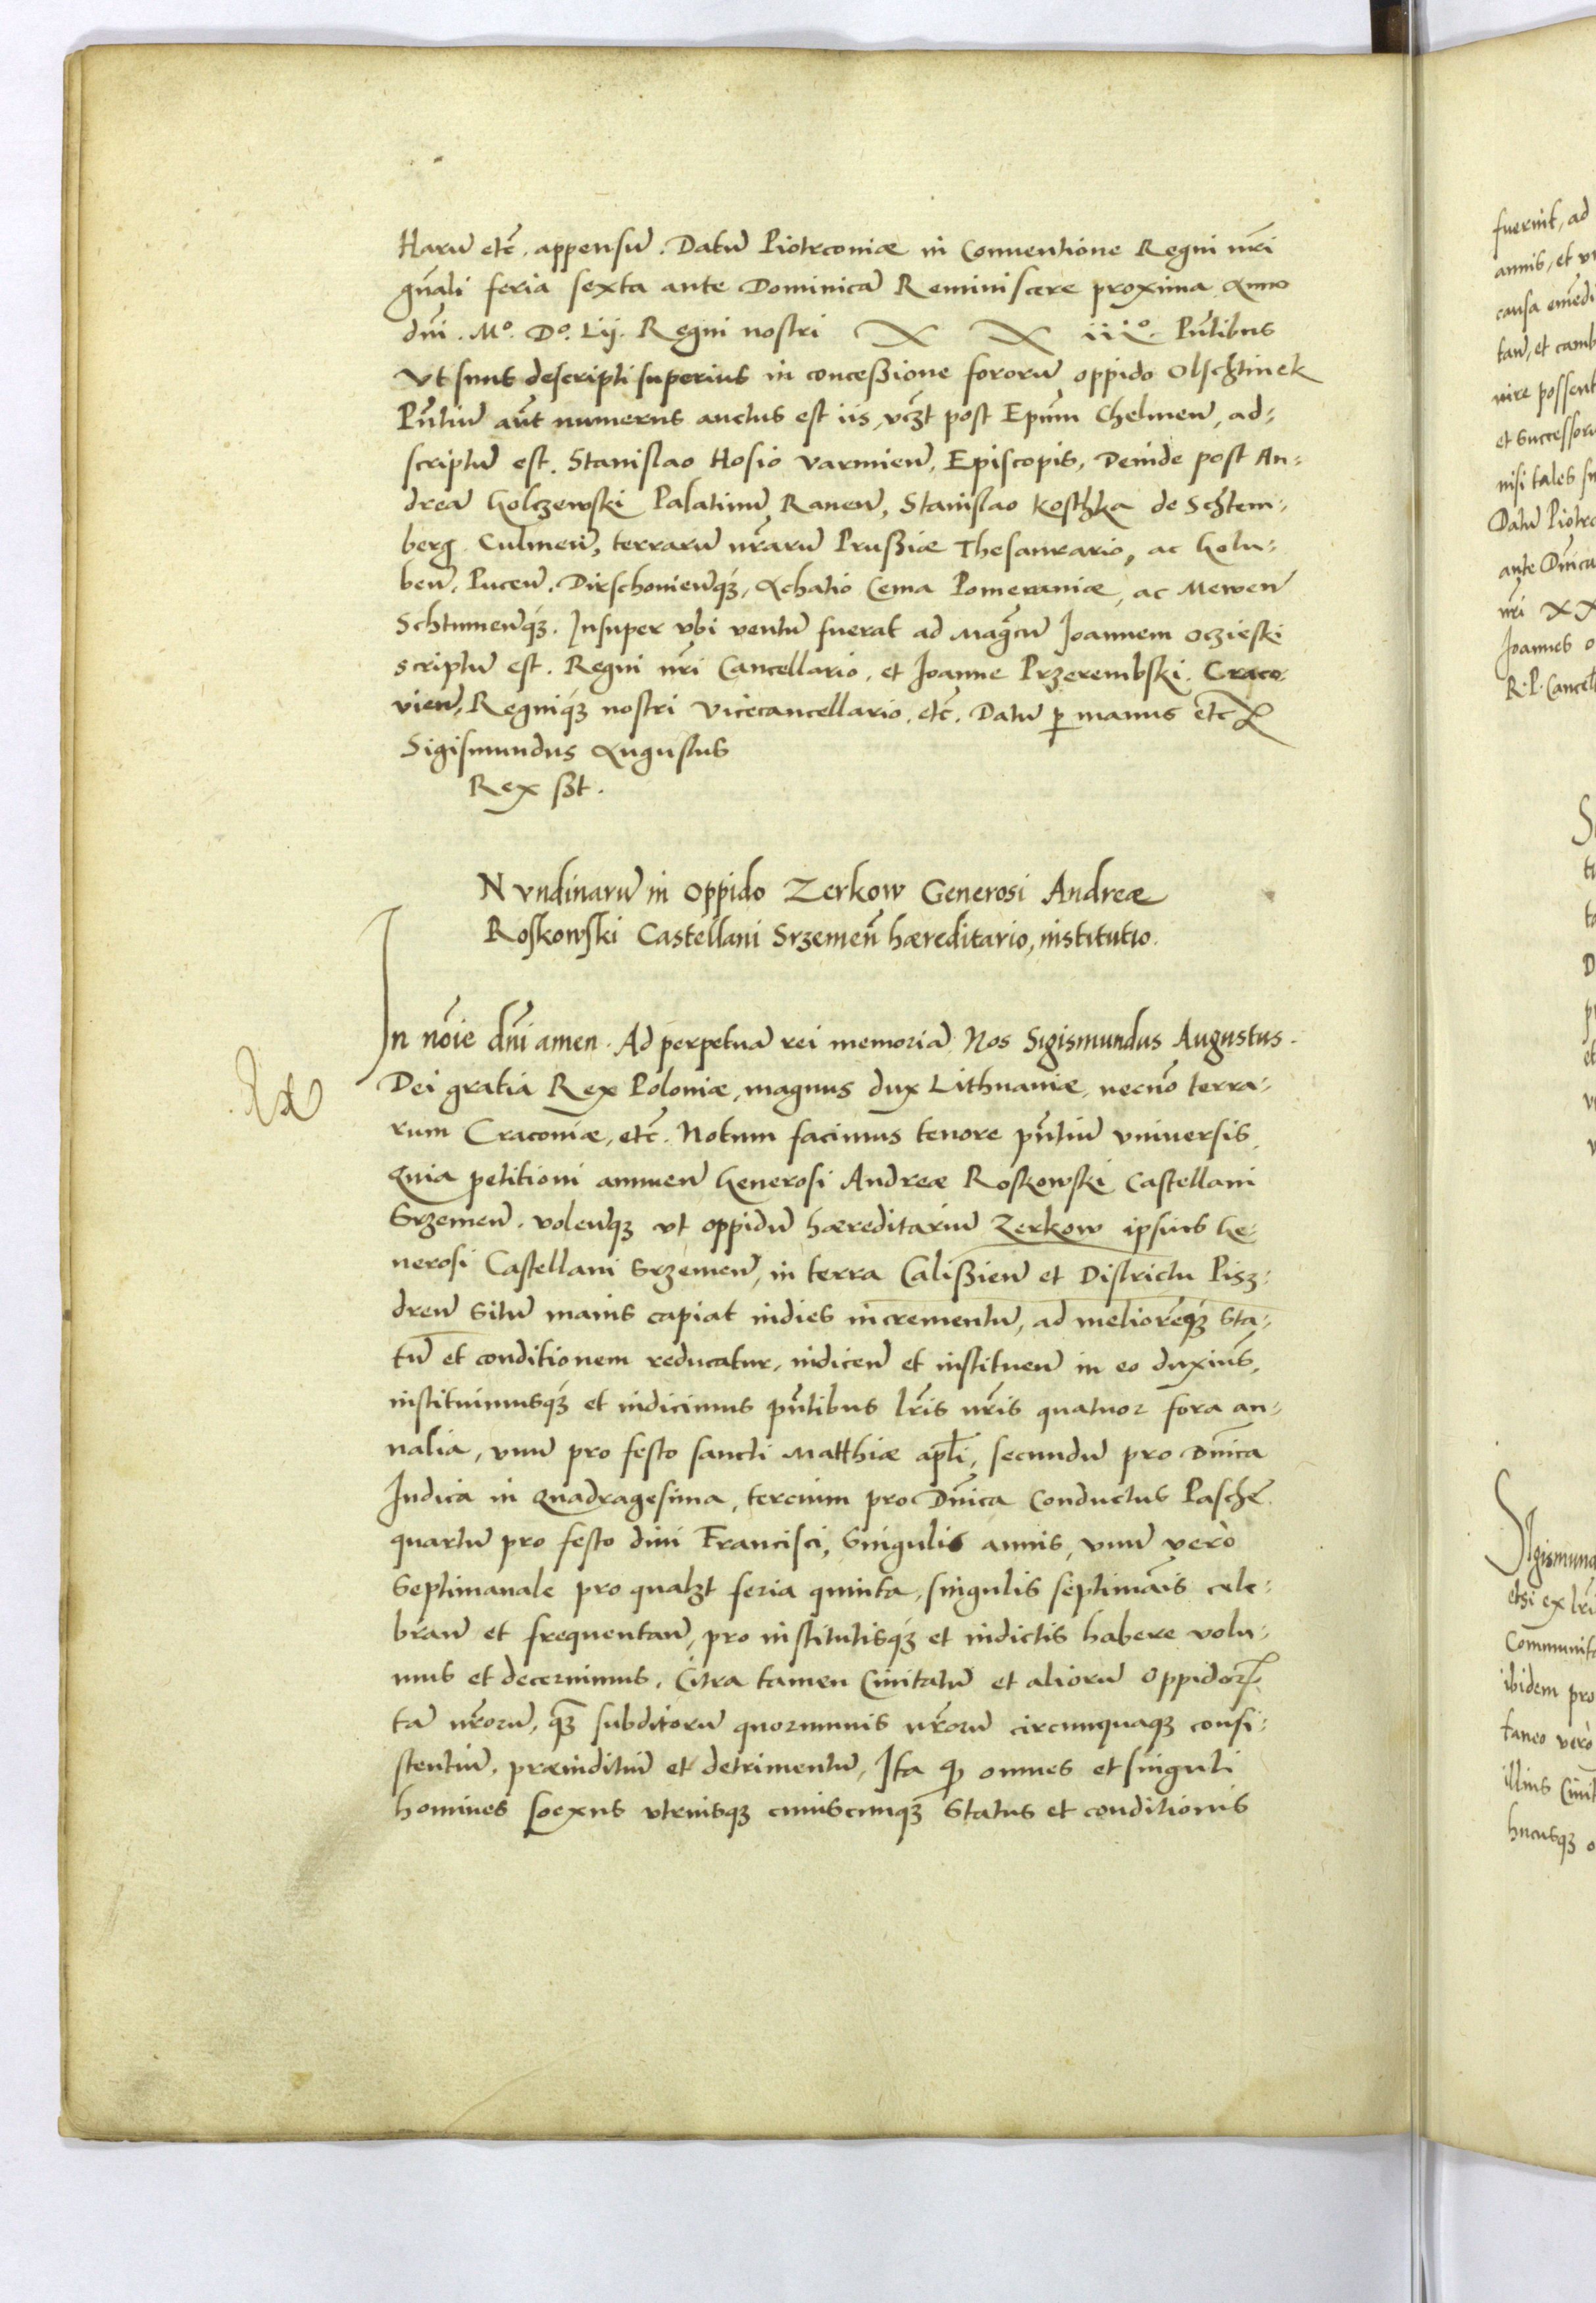 Harū etc̄. appensū. Datū Piotrcoviæ in Conventione Regni nr̄i
gn̄ali feria sexta ante Dominicā Reminiscere proxima Anno
dn̄i. Mº. Dº. Lij. Regni nostri X X iiiº. Pn̄tibus
Ut suprs descripti superius in conceßione fororū oppido Olschtinek
Pn̄tiū aūt numerus auctus est iis, vcꝫt post Ep̄um Chelmen̄, ad-
scriptū est. Stanislao Hosio varmien̄, Episcopis, Deinde post An-
dreā Golczewski Palatinū Raven̄, Stanislao Kosthka de Schtem-
berg Culmen̄, terrarū nr̄arū Prußiæ Thesaurario, ac Golu-
ben̄. Pucen̄. Dirschovien̄qꝫ, Achatio Cema Pomeraniæ, ac Mewen̄
Schtumen̄qꝫ. Insuper ubi ventū fuerat ad Mag̅cū Joannem Oczieski
scriptū est. Regni nr̄i Cancellario, et Joanne Przerembski. Craco-
vien̄, Regniqꝫ nostri Vicecancellario. etc̄. Datū ꝑ manus etc̄
Sigismundus Augustus
Rex ßt.
Nundinarū in Oppido Zerkow Generosi Andreæ
Roskowski Castellani Srzemen̄ hæreditario, institutio.
In nōie dn̄i amen. Ad perpetuā rei memoriā Nos Sigismundus Augustus.
Dei gratia Rex Poloniæ, magnus dux Lithuaniæ, necnō terra-
rum Cracoviæ, etc̄. Notum facimus tenore pn̄tiū universis
Quia petitioni annuen̄ Generosi Andreæ Roskowski Castellani
Srzemen̄. volen̄qꝫ ut oppidū hæreditariū Zerkow ipsius Ge-
nerosi Castellani Srzemen̄, in terra Calißien̄ et Districtu Pisz-
dren̄ Sitū maius capiat indies incrementū, ad melioremqꝫ sta-
tū et conditionem reducatur, indicen̄ et instituen̄ in eo duxim̄s,
instituimusqꝫ et indicimus pn̄tibus lr̄is nr̄is quatuor fora an-
nalia, unū pro festo sancti Matthiæ apl̄i, secundū pro Dn̄ica
Judica in Quadragesima, tercium pro Dn̄ica Conductus Paschē.
quartū pro festo divi Francisci, Singulis annis, unū verò
Septimanale pro qualꝫt feria quinta, singulis septimāis cele-
bran̄ et frequentan̄, pro institutisqꝫ et indictis habere volu-
mus et decernimus. Citra tamen Civitatū et aliorū Oppidoꝝ
tā nr̄orū, qꝫ subditorū quorumvis nr̄orū circumquaqꝫ consi-
stentiū. præiuditiū et detrimentū, Ita ꝙ omnes et singuli
homines sexus utriusqꝫ cuiuscunqꝫ Status et conditionis
fuerint, ad
annis, et
tan̄, et camb
nire possent
et Successor
nisi tales
Datū Piotrc
ante Dn̄ica
nr̄i XX
Joannes O
R. P. Cancel
Sigismund
etsi ex lr̄i
Communit
ibidem pro
taneo verò
illius Civit
hucusqꝫ